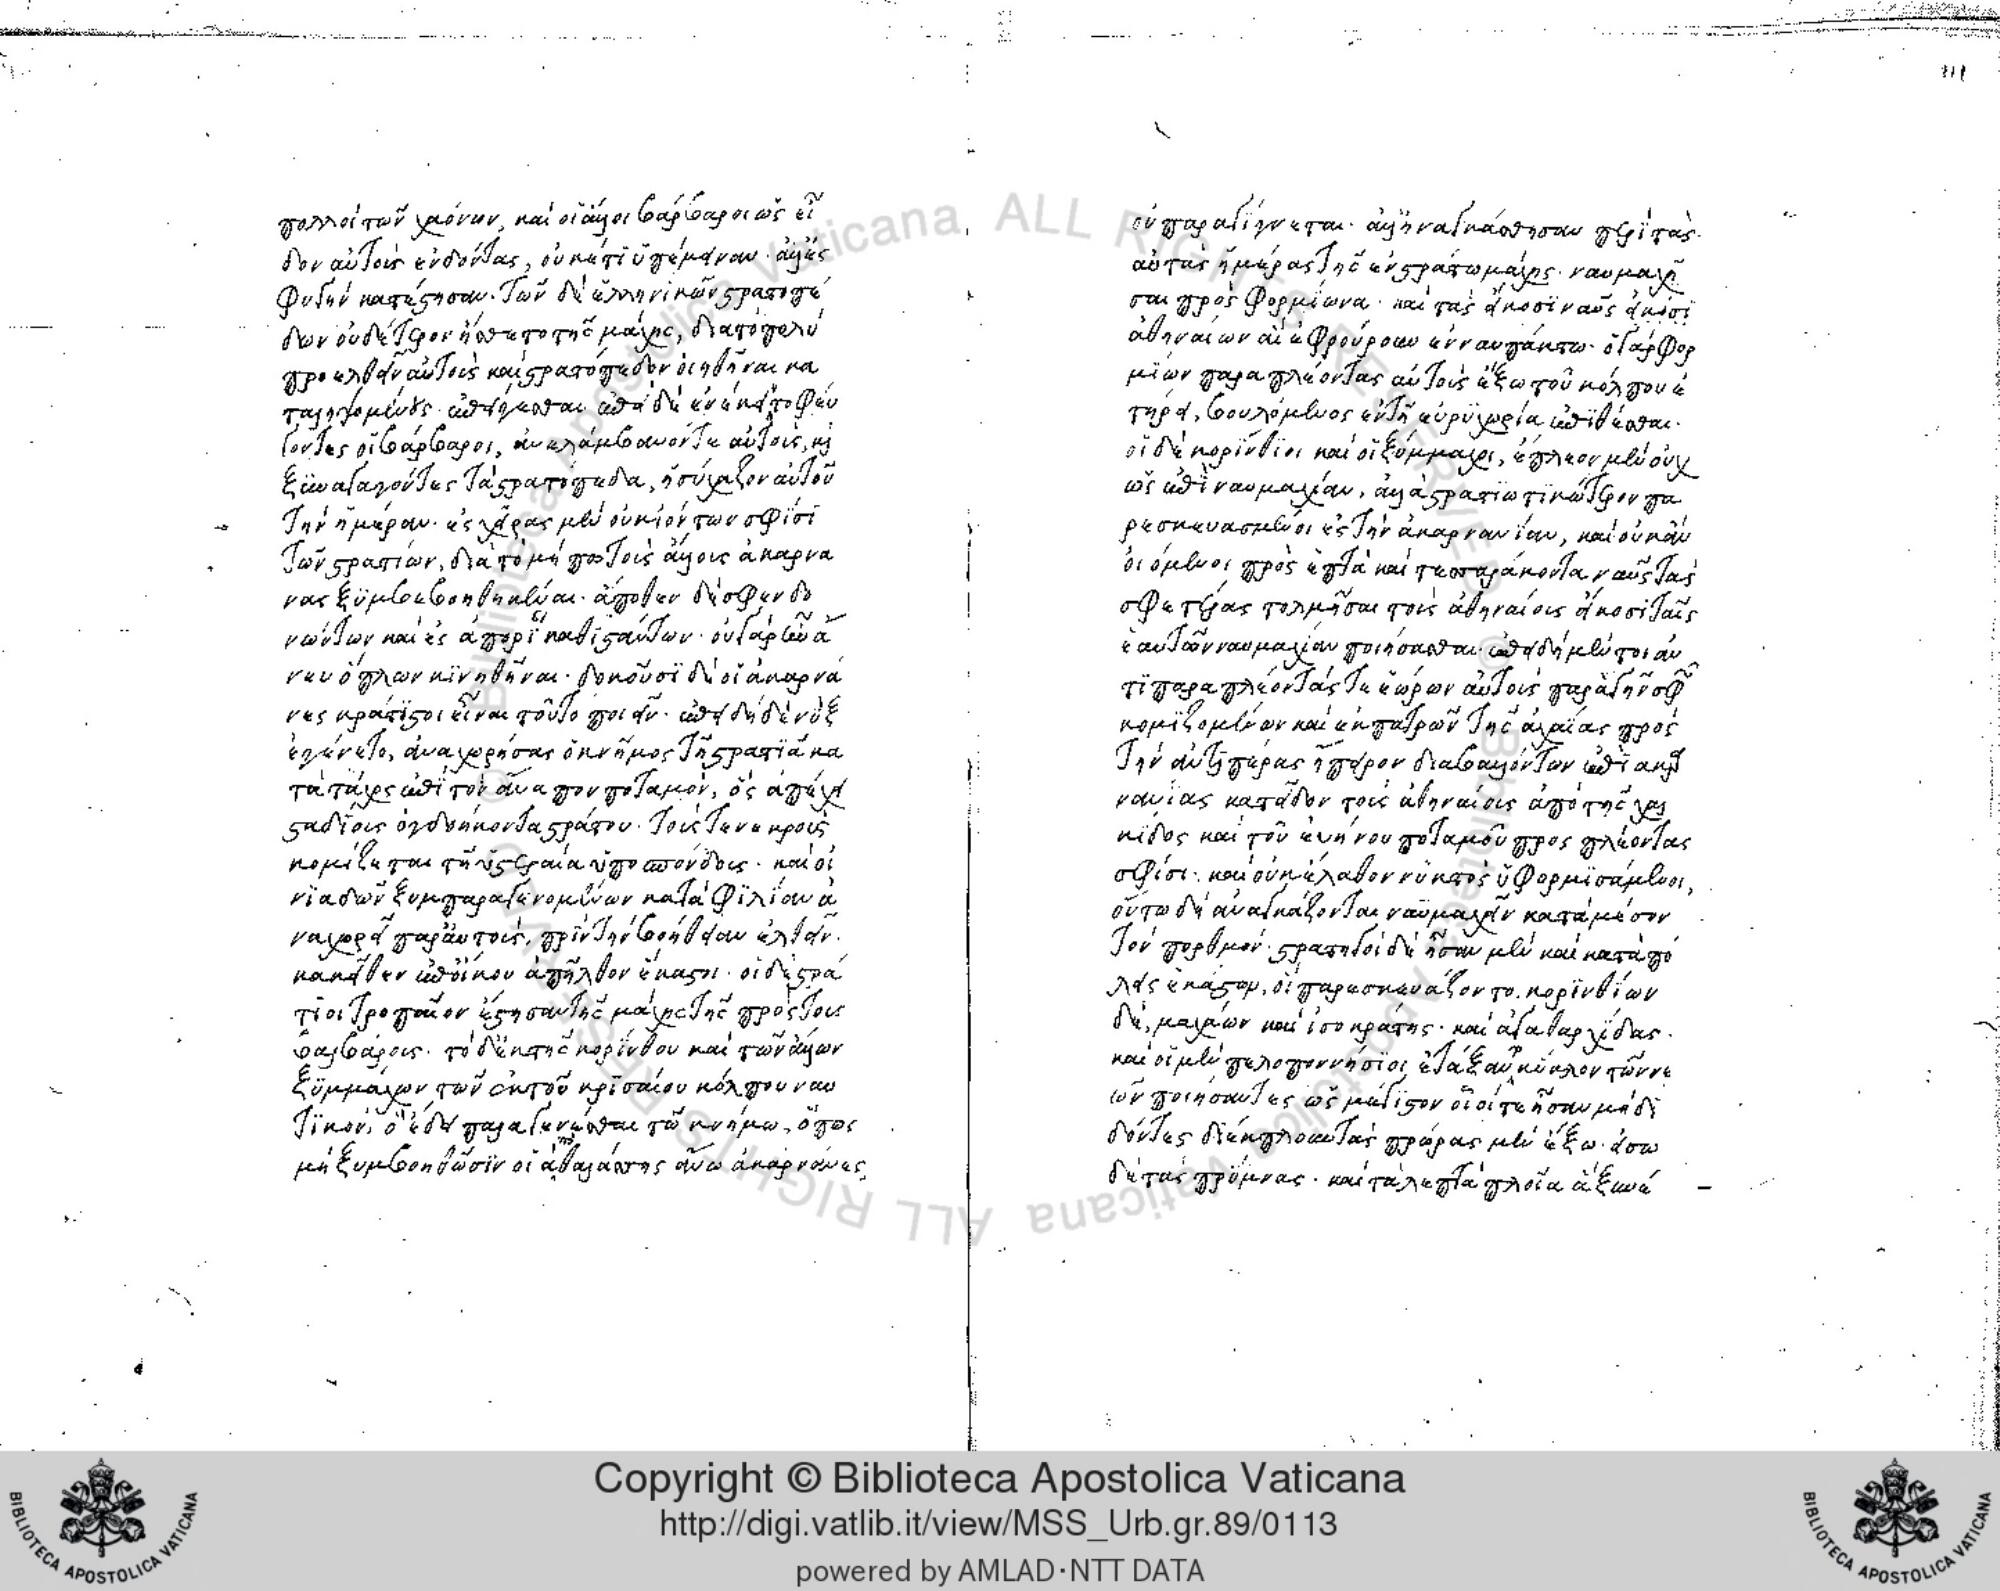 πολλοὶ τῶν χαόνων, καὶ οἱ ἄλλοι βάρβαροι ὡς εἶ
δον αὐτοὺς ἐνδόντας, οὐκέτι ὑπέμειναν· ἀλλ' ἐς
φυγὴν κατέστησαν. τῶν δὲ ἑλληνικῶν στρατοπέ
δων οὐδέτερον ἤσθετο τῆς μάχης, διὰ τὸ πολὺ
προελθεῖν αὐτοὺς καὶ στρατόπεδον οἰηθῆναι κα
ταληψομένους ἐπείγεσθαι ἐπεὶ δὲ ἐνέκειντο φεύ
γοντες οἱ βάρβαροι, ἀνελάμβανόν τε αὐτοὺς, καὶ
ξυναγαγόντες τὰ στρατόπεδα, ἡσύχαζον αὐτοῦ
τὴν ἡμέραν· ἐς χεῖρας μὲν οὐκ ἰόντων σφίσι
τῶν στρατίων, διὰ τὸ μή πω τοὺς ἄλλους ἀκαρνα
νας ξυμβεβοηθηκέναι· ἄποθεν δὲ σφενδο
νώντων καὶ ἐς ἀπορί καθιστάντων· οὐ γὰρ ἦν ἄ
νευ ὅπλων κινηθῆναι· δοκοῦσι δὲ οἱ ἀκαρνᾶ
νες κράτιστοι εἶναι τοῦτο ποιεῖν· ἐπειδὴ δὲ νὺξ
ἐγένετο, ἀναχωρήσας ὁ κνῆμος τῇ στρατιᾷ κα
τὰ τάχος ἐπὶ τὸν ἄναπον ποταμὸν, ὃς ἀπέχει
σταδίους ὀγδοήκοντα στράτου· τούς τε νεκροὺς
κομίζεται τῇ ὑστεραίᾳ ὑποσπόνδους· καὶ οἰ
νιαδῶν ξυμπαραγενομένων κατὰ φιλίαν ἀ
ναχωρεῖ παρ' αὐτοὺς, πρὶν τὴν βοήθειαν ἐλθεῖν·
κἀκεῖθεν ἐπ' οἴκου ἀπῆλθον ἕκαστοι· οἱ δὲ στρά
τιοι τροπαῖον ἔστησαν τῆς μάχης τῆς πρὸς τοὺς
βαρβάρους· τὸ δ' ἐκ τῆς κορίνθου καὶ τῶν ἄλλων
ξυμμάχων τῶν ἐκ τοῦ κρισαίου κόλπου ναυ
τικὸν, ὃ ἔδει παραγενέσθαι τῷ κνήμῳ, ὅπως
μὴ ξυμβοηθῶσιν οἱ ἀπὸ θαλάσσης ἄνω ἀκαρνᾶνες,
οὐ παραγίγνεται· ἀλλ' ἠναγκάσθησαν περὶ τὰς
αὐτὰς ἡμέρας τῆς ἐν στράτῳ μάχης· ναυμαχῆ
σαι πρὸς φορμίωνα· καὶ τὰς εἴκοσι ναῦς εἴκοσι
ἀθηναίων αἳ ἐφρούρουν ἐν ναυπάκτῳ· ὁ γὰρ φορ
μίων παραπλέοντας αὐτοὺς ἔξω τοῦ κόλπου ἐ
τήρει, βουλόμενος ἐν τῇ εὐρυχωρίᾳ ἐπιθέσθαι·
οἱ δὲ κορίνθιοι καὶ οἱ ξύμμαχοι, ἔπλεον μὲν οὐχ
ὡς ἐπὶ ναυμαχίαν, ἀλλὰ στρατιωτικώτερον πα
ρεσκευασμένοι ἐς τὴν ἀκαρνανίαν, καὶ οὐκ ἂν
οἰόμενοι πρὸς ἑπτὰ καὶ τεσσαράκοντα ναῦς τὰς
σφετέρας τολμῆσαι τοὺς ἀθηναίους εἴκοσι ταῖς
ἑαυτῶν ναυμαχίαν ποιήσασθαι· ἐπειδὴ μέντοι ἀν
τιπαραπλέοντάς τε ἑώρων αὐτοὺς παρὰ γῆν σφῶν
κομιζομένων καὶ ἐκ πατρῶν τῆς ἀχαΐας πρὸς
τὴν ἀντιπέρας ἤπειρον διαβαλλόντων ἐπὶ ἀκαρ
νανίας κατεῖδον τοὺς ἀθηναίους ἀπὸ τῆς χαλ
κίδος καὶ τοῦ εὐήνου ποταμοῦ προσπλέοντας
σφίσι· καὶ οὐκ ἔλαθον νυκτὸς ὑφορμισάμενοι,
οὕτω δὴ ἀναγκάζονται ναυμαχεῖν κατὰ μέσον
τὸν πορθμόν· στρατηγοὶ δὲ ἦσαν μὲν καὶ κατὰ πό
λεις ἑκάστων, οἳ παρεσκευάζοντο. κορινθίων
δὲ, μαχάων καὶ ἰσοκράτης· καὶ ἀγαθαρχίδας·
καὶ οἱ μὲν πελοποννήσιοι ἐτάξαντο κύκλον τῶν νε
ῶν ποιήσαντες ὡς μέγιστον οἷοί τε ἦσαν μὴ δι
δόντες διέκπλουν τὰς πρώρας μὲν ἔξω· εἴσω
δὲ τὰς πρύμνας· καὶ τὰ λεπτὰ πλοῖα ἃ ξυνέ
Copyright © Biblioteca Apostolica Vaticana
http://digi.vatlib.it/view/MSS_Urb.gr.89/0113
powered by AMLAD·NTT DATA